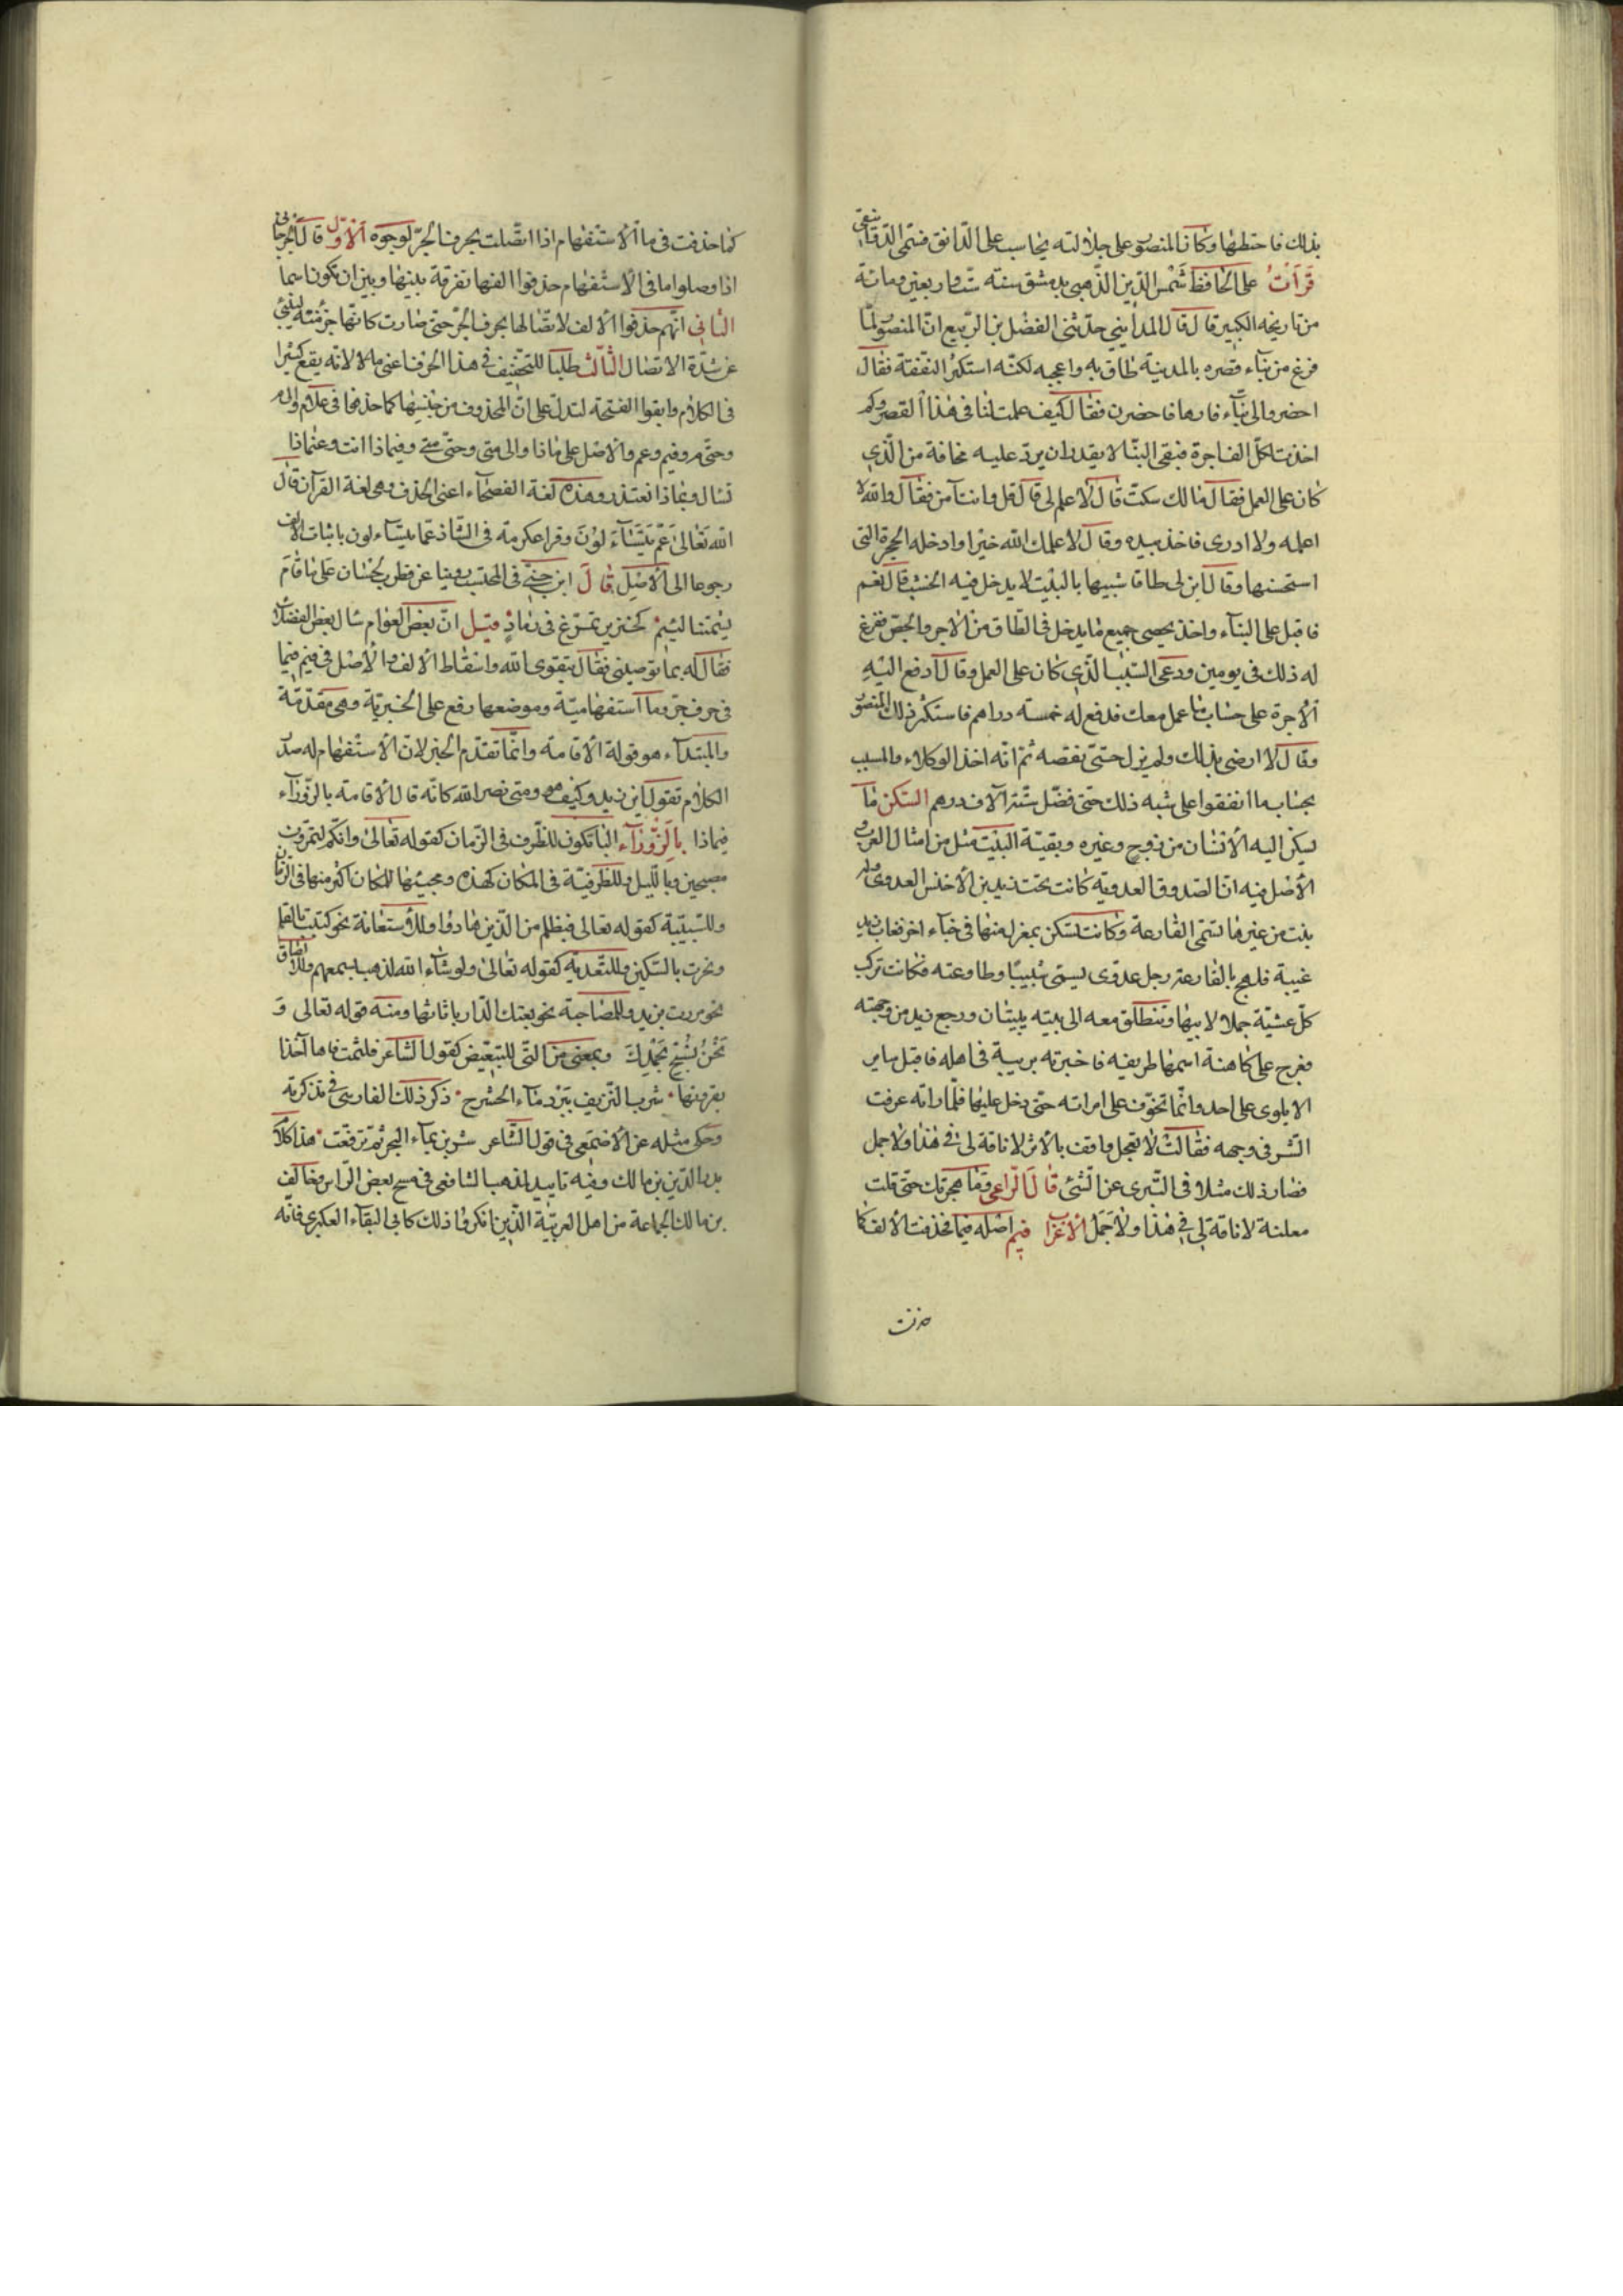 بذلك فاختطها وكان المنصور على جلالته يحاسب على الدانق فسمى الدوانيقى
قرأت على الحافظ شمس الدين الذهبى بدمشق سنة ست واربعين ومائة
من تاريخه الكبير قال قال المداينى حدثنى الفضل بن الربيع ان المنصور لما
فرغ من بناء قصره بالمدينة طاف به واعجبه لكنه استكثر النفقة فقال
احضر والى بناء فارها فاحضرن فقال كيف عملت لنا فى هذا القصر وكم
اخذت لكل الف اجرة فبقى البنا لا يقدر ان يرد عليه مخافة من الذى
كان على العمل فقال مالك سكت قال لا علم لى قال قل وانت آمن فقال والله لا
اعمله ولا ادرى فاخذ بيده وقال لا علمك الله خيرا وادخله الحجرة التى
استحسنها وقال ابن لى طاقا شبيها بالبيت لا يدخل فيه الخشب قال نعم
فاقبل على البناء واخذ يحصى جميع ما يدخل فى الطاق من الاجر والجص ففرغ
له ذلك فى يومين ودعى المسبب الذى كان على العمل وقال ادفع اليه
الاجرة على حساب ما عمل معك فدفع له خمسة دراهم فاستكثر ذلك المنصور
وقال لا ارضى بذلك ولم يزل حتى نقصه ثم انه اخذ الوكلاء والمسبب
بحساب ما انفقوا على شبه ذلك حتى فضل ستة آلاف درهم السكن ما
يسكن اليه الانسان من زوج وغيره وبقية البيت مثل من امثال العرب و
الاصل فيه ان الصدوف العدوية كانت تحت زيد بن الاخنس العدوى وله
بنت من غيرها تسمى الفارعة وكانت تسكن بمعزل منها فى خباء اخر فغاب زيد
غيبة فلهج بالفارعة رجل عدوى يسمى شبيبا وطاوعته فكانت تركب
كل عشية جملا لابيها وتنطلق معه الى بيته يبيتان ورجع زيد من وجهته
فعرج على كاهنة اسمها طريفه فاخبرته بريبة فى اهله فاقبل ساير
الا يلوى على احد وانما تخوف على امراته حتى دخل عليها فلما راته عرفت
الشر فى وجهه فقالت لا تعجل واقف بالاثر لا ناقة لى فى هذا ولا جمل
فصار ذلك مثلا فى التبرى عن الشئ قال الراعى وما هجرتك حتى قلت
معلنة لا ناقة لى فى هذا ولا جمل الاعراب فيم اصله فيما فحذفت الالف كما
حذفت
كما حذفت فى ما الاستفهام اذا اتصلت بحرف الجر لوجوه الاول قال الجرجانى
اذا وصلوا ما فى الاستفهام حذفوا الفها تفرقة بينها وبين ان تكون اسما
الثانى انهم حذفوا الالف لاتصالها بحرف الجر حتى صارت كانها جزء منه لينبئ
عن شدة الاتصال الثالث طلبا للتخفيف فى هذا الحرف اعنى ما لانه يقع كثيرا
فى الكلام وابقوا الفتحة لتدل على ان المحذوف من جنسها كما حذفها فى علام والام
وحتى م وفيم وعم والاصل على ماذا والى متى وحتى متى وفيماذا انت وعماذا
تسال وبماذا نعتذر وهذه لغة الفصحاء اعنى الحذف وهى لغة القرآن قال
الله تعالى عم يتساءلون وقرا عكرمة فى الشاذ عما يتساءلون باثبات الالف
رجوعا الى الاصل قال ابن جنى فى المحتسب روينا عن قطرب لحسان على ما قام
يشتمنا لئيم كخنزير تمرغ فى رماد قيل ان بعض العوام سال بعض الفضلا
فقال له بما توصينى فقال بتقوى الله واسقاط الالف والاصل فى فيم فيما
فى حرف جر وما استفهامية وموضعها رفع على الخبرية وهى مقدمة
والمبتداء هو قوله الاقامة وانما تقدم الخبر لان الاستفهام له صدر
الكلام تقول اين زيد وكيف هو ومتى نصر الله كانه قال الاقامة بالزوراء
فيماذا بالزوراء البا تكون للظرف فى الزمان كقوله تعالى وانكم لتمرون
مصبحين وبالليل وللظرفية فى المكان كهذه ومجيئها للمكان اكثر منها فى الزمان
وللسببية كقوله تعالى فبظلم من الذين هادوا وللاستعانة نحو كتبت بالقلم
ونحرت بالسكين وللتعدية كقوله تعالى ولو شاء الله لذهب بسمعهم وللالصاق
نحو مررت بزيد وللمصاحبة نحو بعتك الدار باثاثها ومنه قوله تعالى و
نحن نسبح بحمدك وبمعنى من التى للتبعيض كقول الشاعر فلثمت فاها آخذا
بقرونها شرب النزيف ببرد ماء الحشرج ذكر ذلك الفارسى فى تذكرته
وحكى مثله عن الاصمعى فى قول الشاعر شربن بماء البحر ثم ترفعت هذا كلام
بدر الدين بن مالك وفيه تاييد لمذهب الشافعى فى مسح بعض الراس وخالف
بن مالك لجماعة من اهل العربية الذين انكروا ذلك كابى البقاء العكبرى فانه